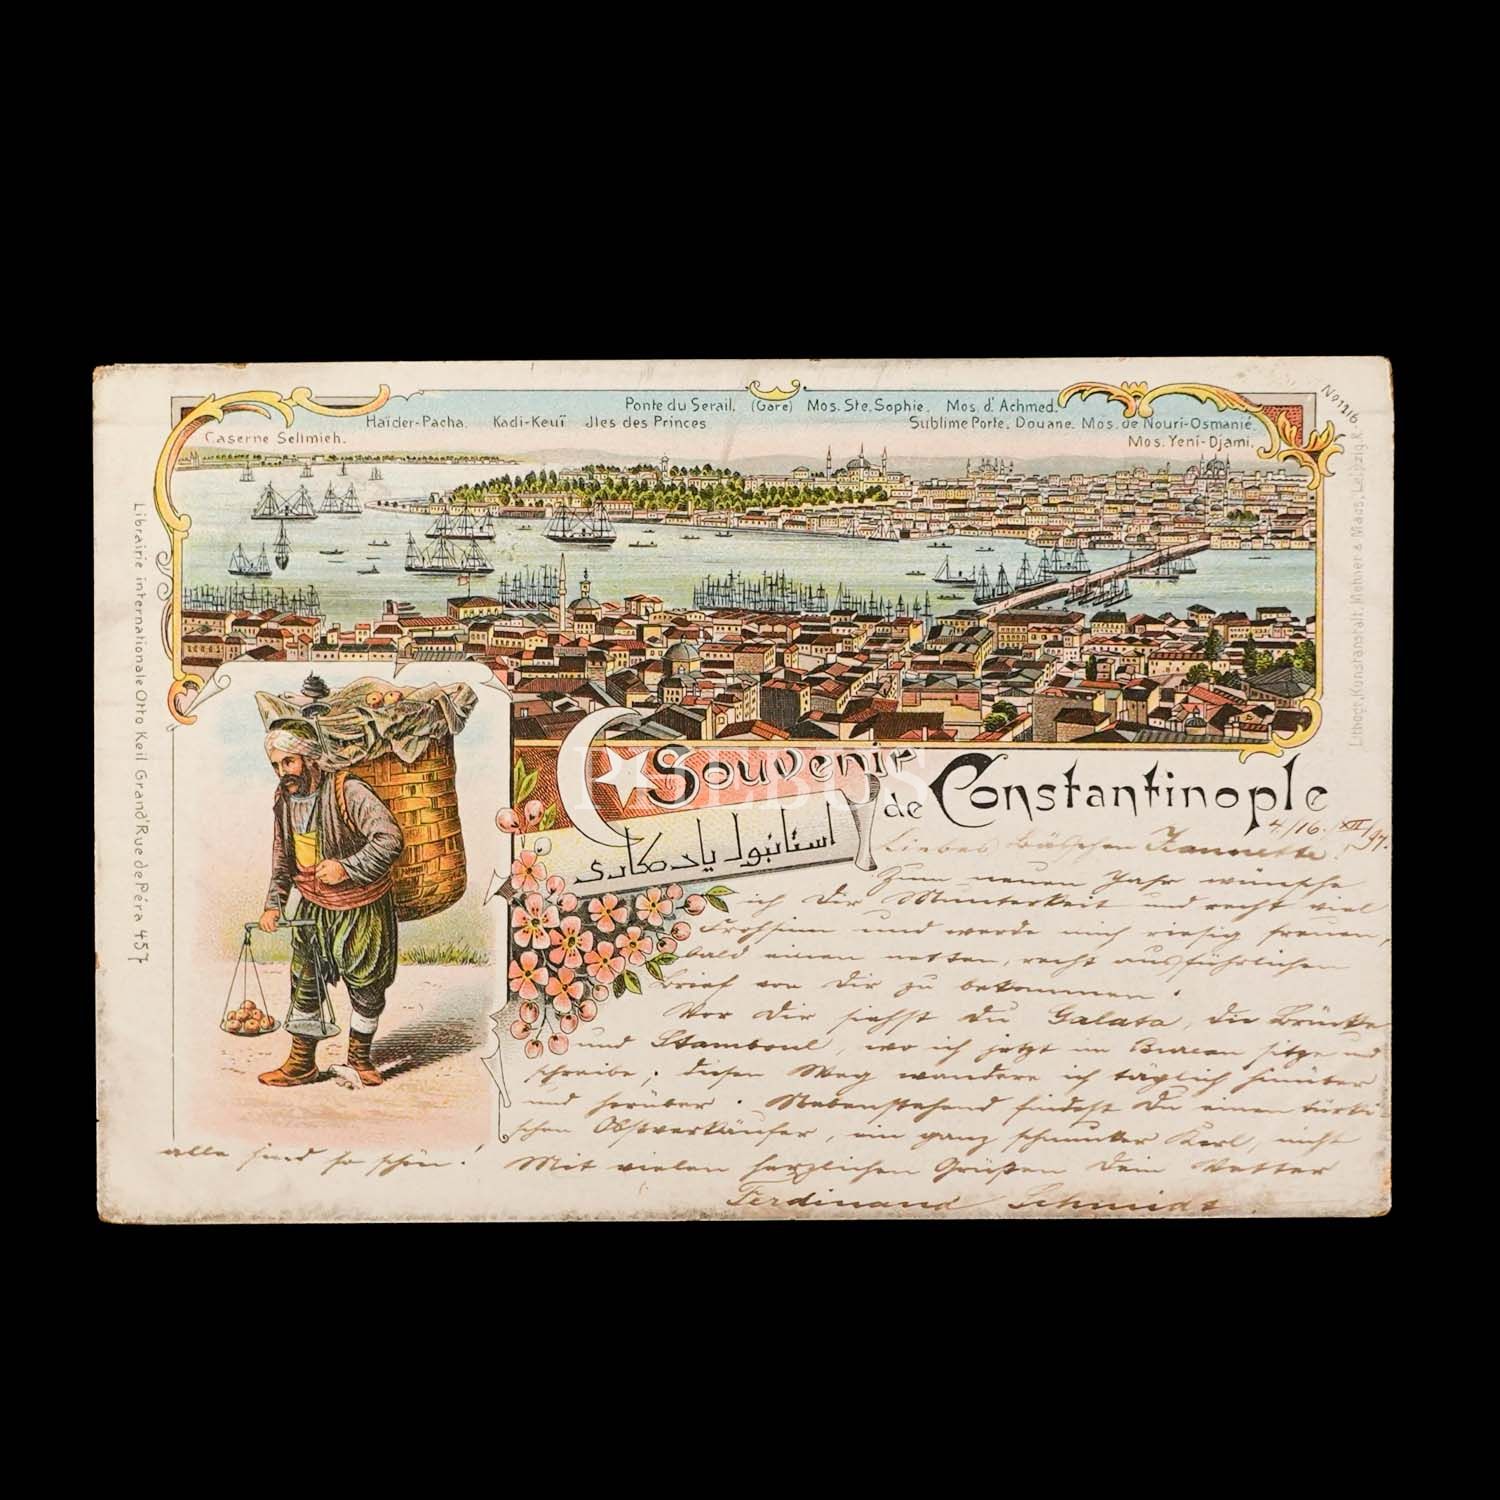 Ponte du Serail. (Gare) Mos. Ste. Sophie. Mos. d'Achmed.
Haider-Pacha. Kadi-Keuï Jles des Princes Sublime Porte. Douane. Mos. de Nouri-Osmanié.
Caserne Selimieh. Mos. Yeni-Djami.
No 1216.
Lithogr. Kunstanstalt. Meitner & Maas, Leipzig.R.
Librairie internationale Otto Keil Grand'Rue de Péra 457
Souvenir
de Constantinople
استانبول یادکاری
PHEBUS
4./16. XII/97.
Liebes Bäschen Jeannette!
Zum neuen Jahr wünsche
ich Dir Munterkeit und recht viel
Frohsinn und werde mich riesig freuen,
bald einen netten, recht ausführlichen
Brief von Dir zu bekommen.
Vor Dir siehst Du Galata, die Brücke
und Stamboul, wo ich jetzt im Bureau sitze und
schreibe; diesen Weg wandere ich täglich hinüber
und herüber. Nebenstehend findest Du einen türki
schen Obstverkäufer, ein ganz schmucker Kerl, nicht
alle sind so schön! Mit vielen herzlichen Grüßen Dein Vetter
Ferdinand Schmidt.